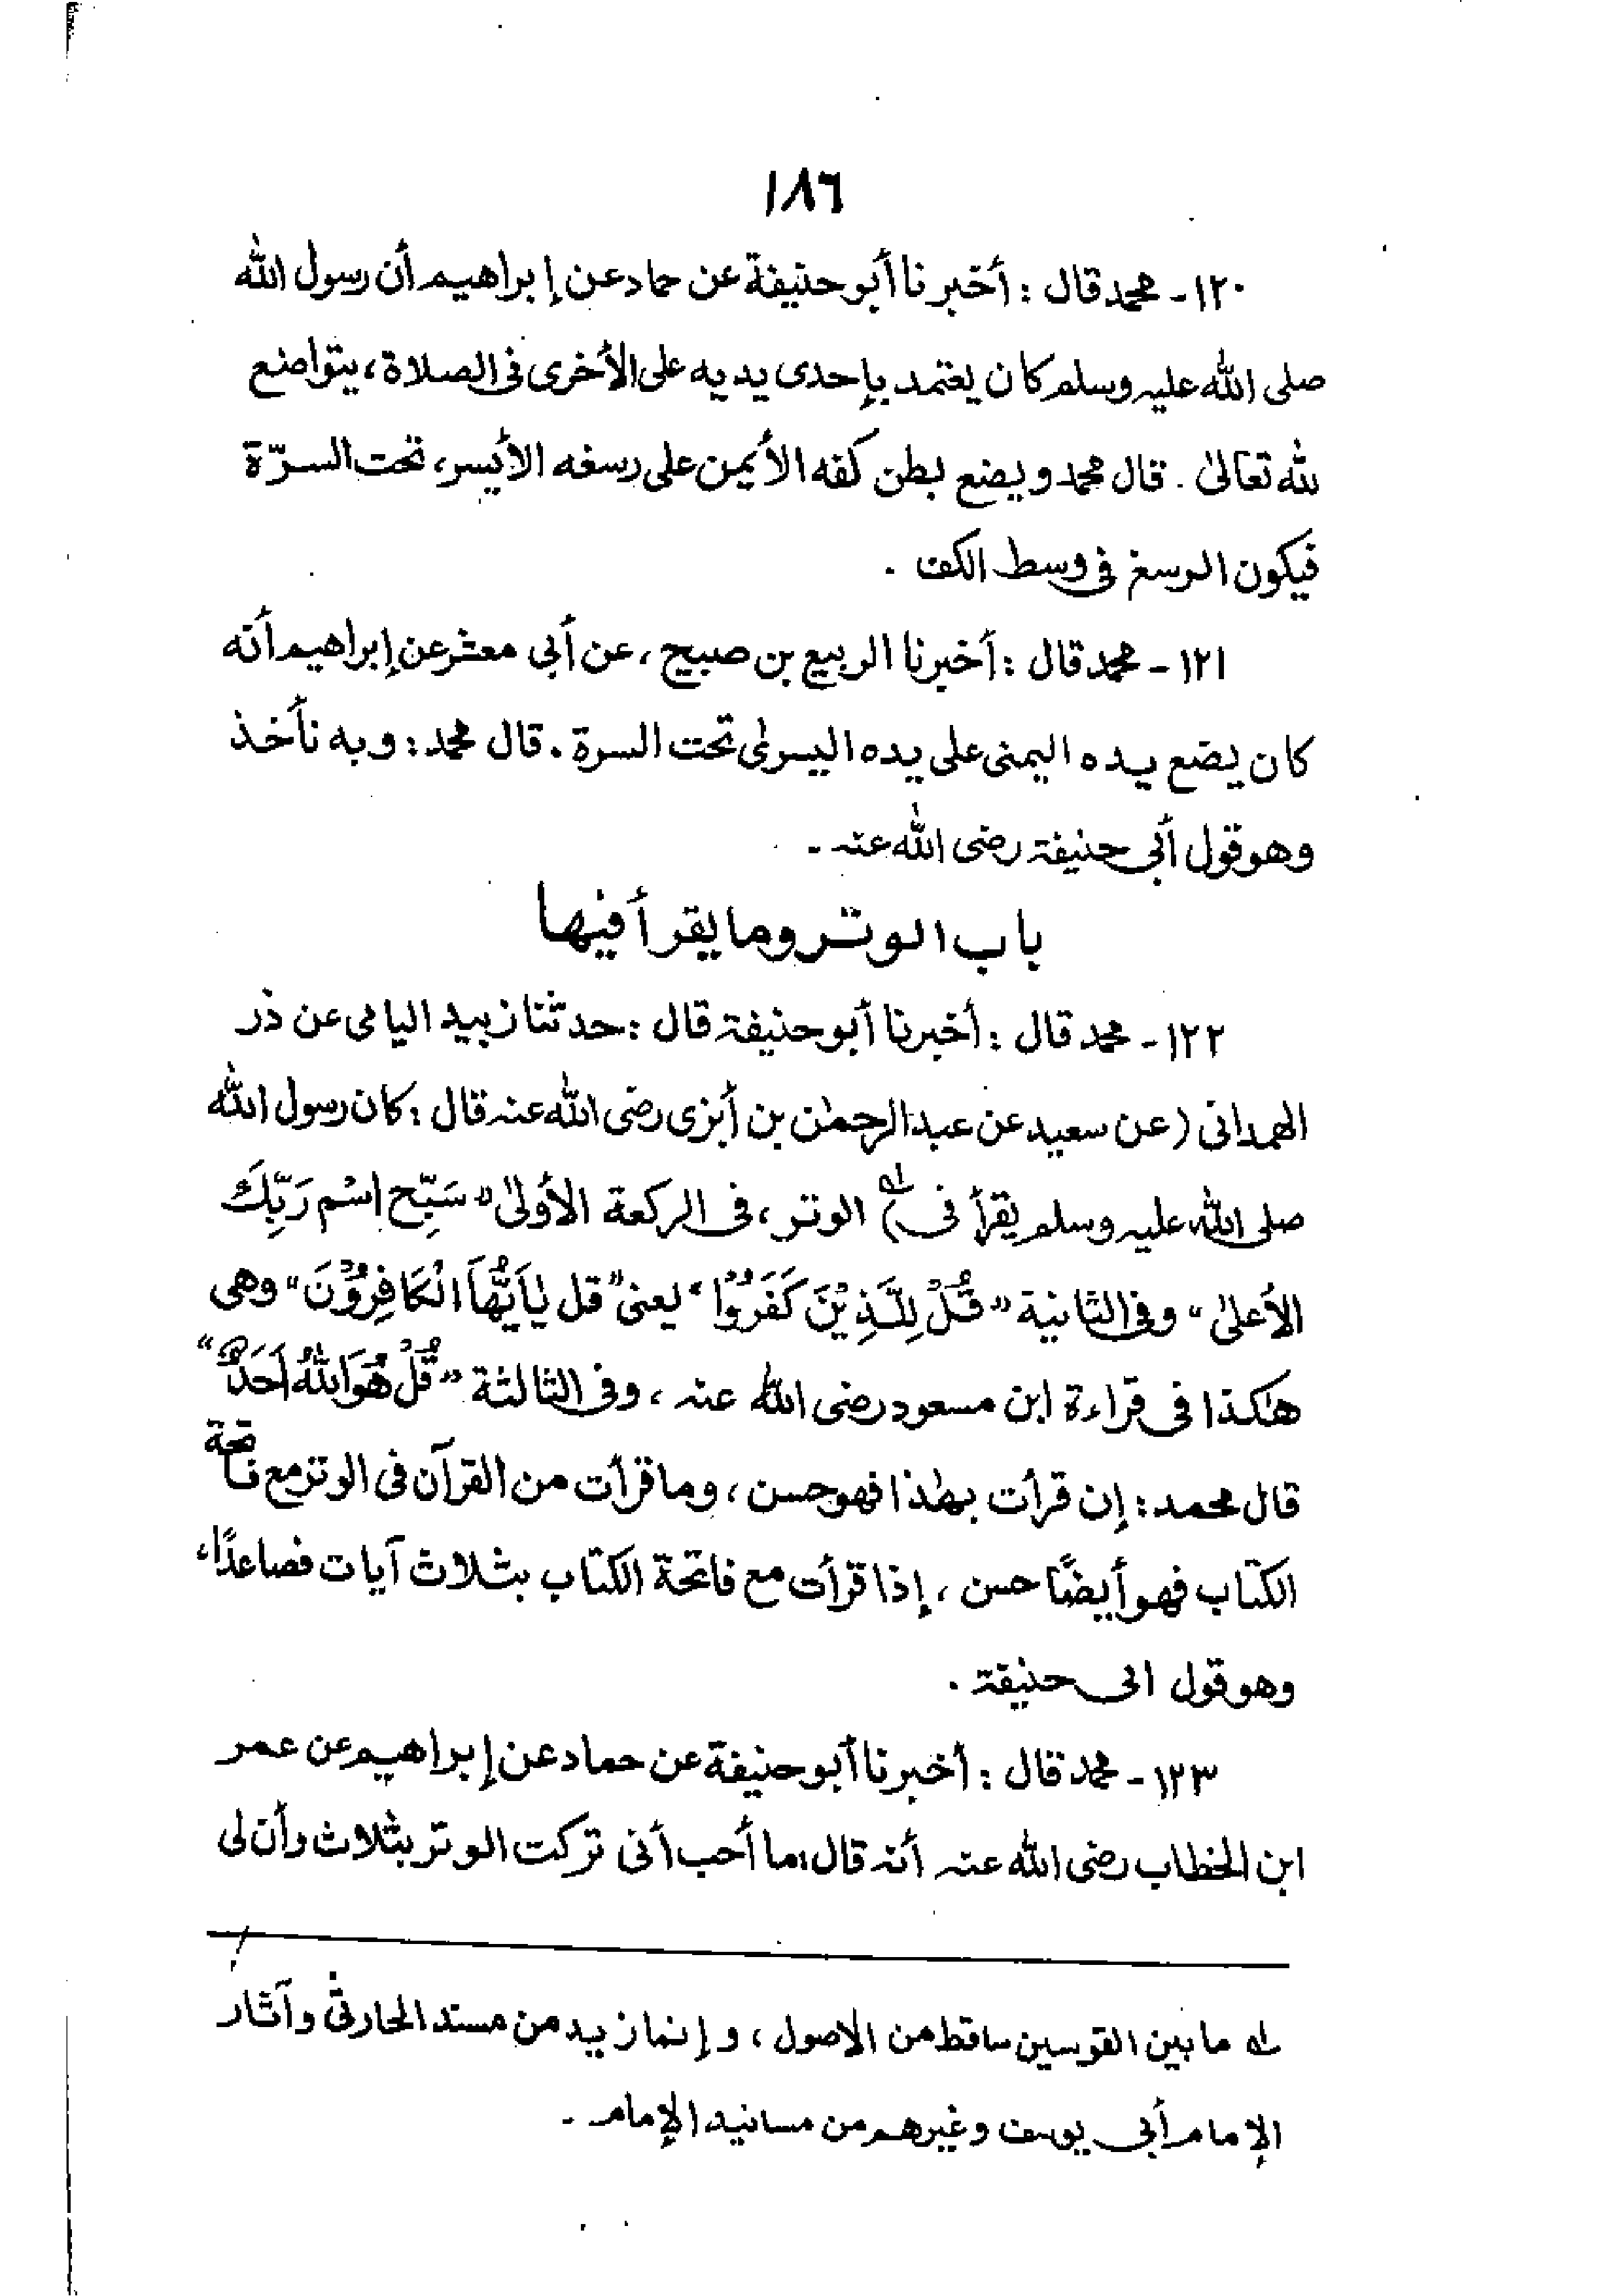 ١٨٦
١٢٠- محمد قال : أخبرنا أبو حنيفة عن حماد عن إبراهيم أن رسول الله
صلى الله عليه وسلم كان يعتمد بإحدى يديه على الأخرى فى الصلاة، يتواضع
لله تعالىٰ . قال محمد ويضع بطن كفه الأيمن على رسغه الأيسر، تحت السرّة
فيكون الرسغ فى وسط الكف .
١٢١- محمد قال : أخبرنا الربيع بن صبيح ، عن أبي معشر عن إبراهيم أنه
كان يضع يده اليمنى على يده اليسرىٰ تحت السرة . قال محمد : وبه نأخذ
وهو قول أبي حنيفة رضى الله عنه -
باب الوتر وما يقرأ فيها
١٢٢- محمد قال : أخبرنا أبو حنيفة قال : حدثنا زبيد اليامى عن ذر
الهمدانى (عن سعيد عن عبد الرحمٰن بن أبزى رضى الله عنه قال : كان رسول الله
صلى الله عليه وسلم يقرأ فى) له الوتر ، فى الركعة الأولىٰ " سَبِّح اسْم رَبِّكَ
الأعلىٰ " وفى الثانية " قُلْ لِلَّذِيْنَ كَفَرُوْا " يعنى " قل يٰأَيُّهَا الْكَافِرُوْنَ " وهى
هٰكذا فى قراءة ابن مسعود رضى الله عنه ، وفى الثالثة " قُلْ هُوَ اللهُ اَحَدٌ "
قال محمد : إن قرأت بهٰذا فهو حسن ، وما قرأت من القرآن فى الوتر مع فاتحة
الكتاب فهو أيضًا حسن ، إذا قرأت مع فاتحة الكتاب بثلاث آيات فصاعدًا،
وهو قول ابى حنيفة .
١٢٣- محمد قال : أخبرنا أبو حنيفة عن حماد عن إبراهيم عن عمر
ابن الخطاب رضى الله عنه أنه قال: ما أحب أنى تركت الوتر بثلاث وأن لى
له ما بين القوسين ساقط من الاصول ، وإنما زيد من مسند الحارثى وآثار
الإمام أبي يوسف وغيرهم من مسانيد الإمام -